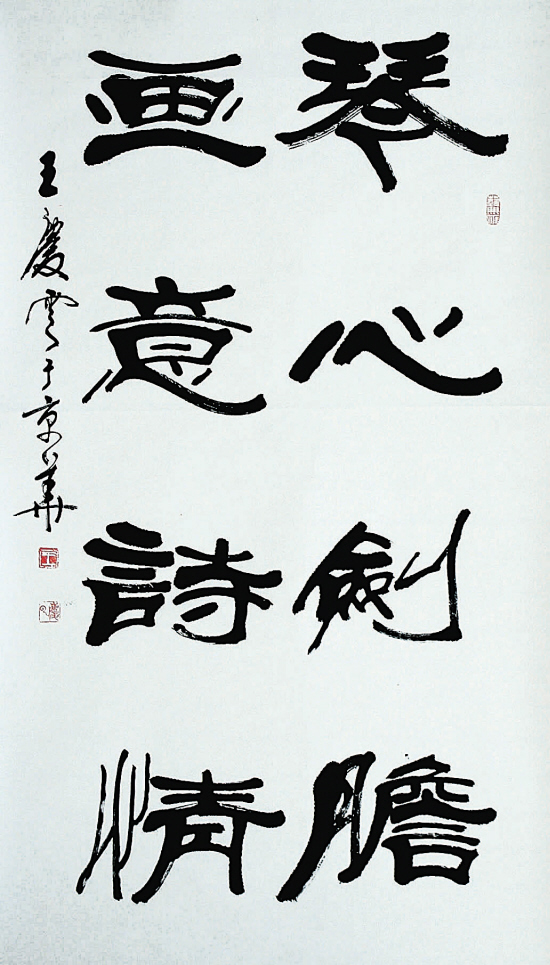 琴心劍膽
画意詩情
王慶雲于京華